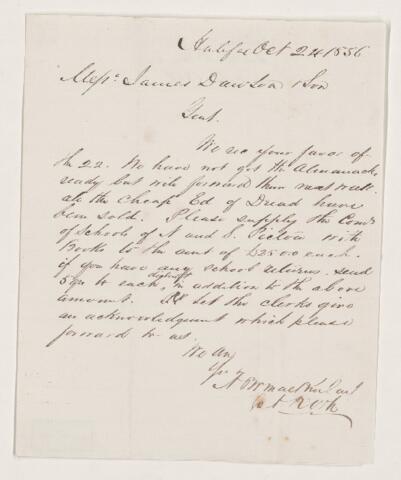 Halifax Oct 24 1856
Messrs. James Dawson & Son
Gent.
We rec your favor of
the 22. We have not got the Almanacks
ready but will forward them next week
all the cheap Ed of Dread have
been sold. Please supply the Comrs
of Schools of N and S. Pictou with
Books to the amt of £25 00 each.
if you have any school returns send
50 to each, in addition to the above
amount. let the clerks give
an acknowledgment which please
forward to us.
We are
Yrs
A & W MacKinlay